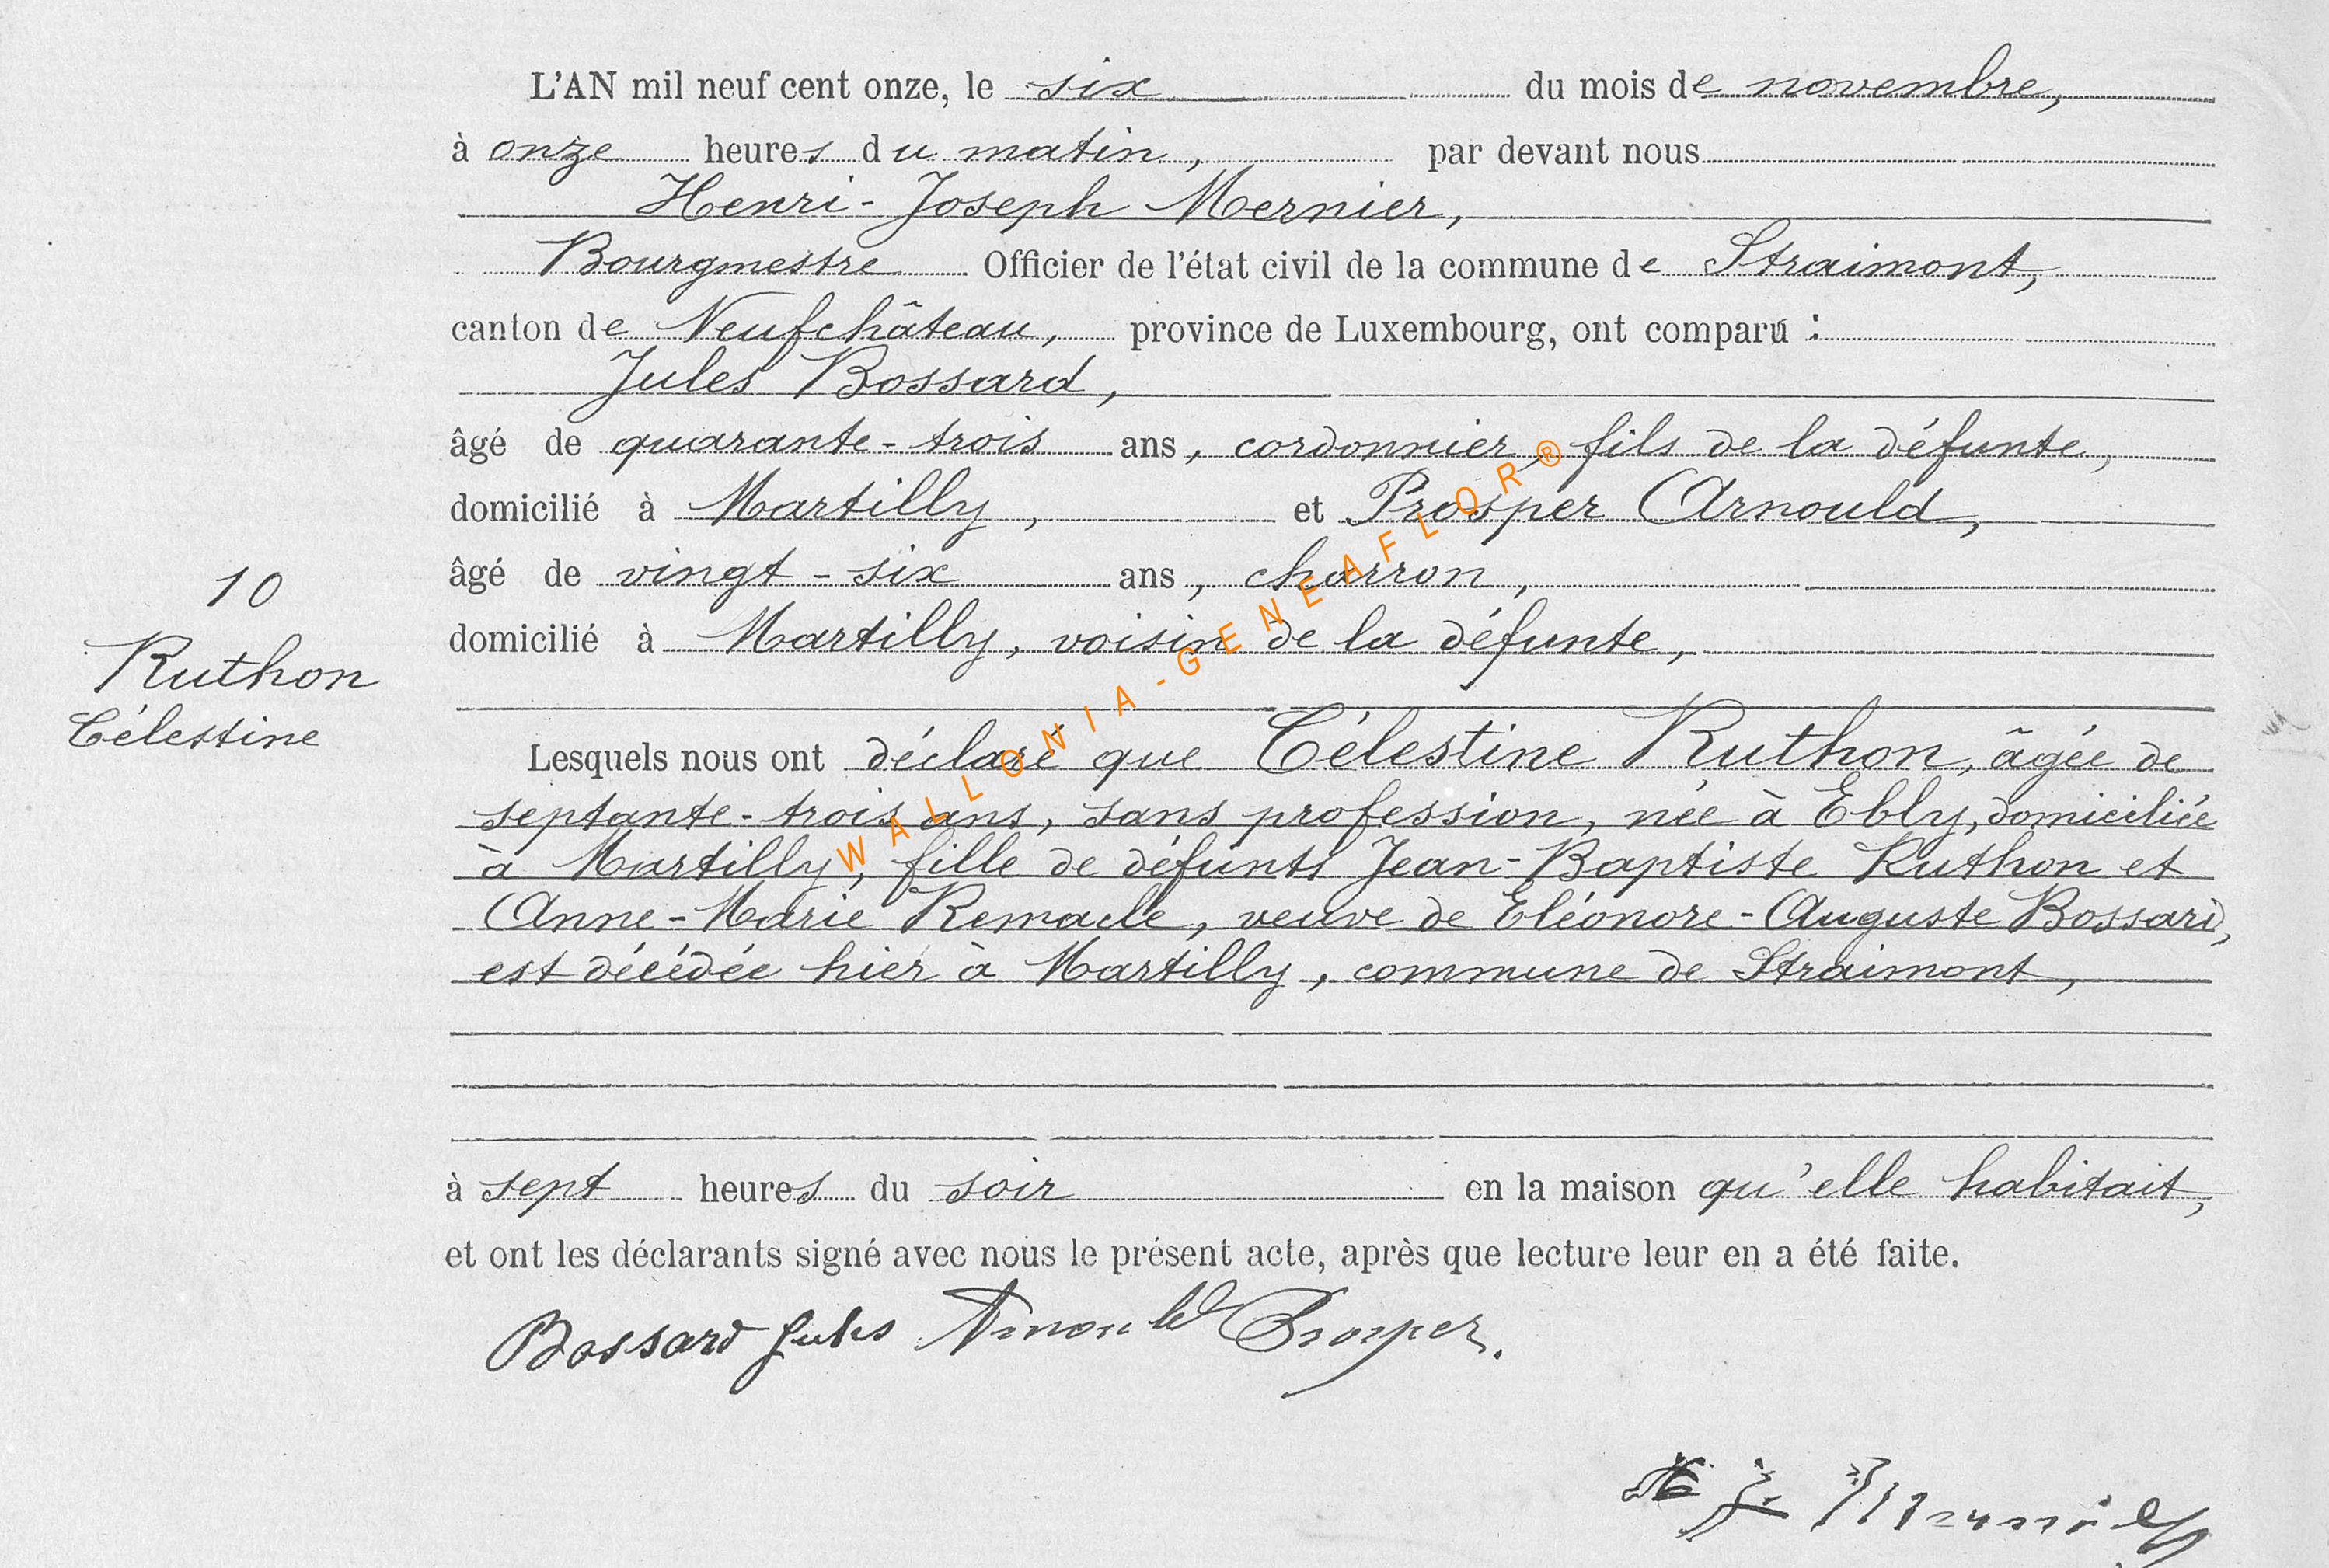 L'AN mil neuf cent onze, le six du mois de novembre,
à onze heures du matin, par devant nous
Henri-Joseph Mernier,
Bourgmestre Officier de l'état civil de la commune de Straimont,
canton de Neufchâteau, province de Luxembourg, ont comparu :
Jules Bossard,
âgé de quarante-trois ans, cordonnier, fils de la défunte,
domicilié à Martilly, et Prosper Arnould,
âgé de vingt-six ans, charron,
domicilié à Martilly, voisin de la défunte,
10
Ruthon
Célestine
Lesquels nous ont déclaré que Célestine Ruthon, âgée de
septante-trois ans, sans profession, née à Ebly, domiciliée
à Martilly, fille de défunts Jean-Baptiste Ruthon et
Anne-Marie Remacle, veuve de Eléonore-Auguste Bossard,
est décédée hier à Martilly, commune de Straimont,
à sept heures du soir en la maison qu'elle habitait,
et ont les déclarants signé avec nous le présent acte, après que lecture leur en a été faite.
Bossard Jules Arnould Prosper.
H J Mernier
WALLONIA-GENEAFLOR®